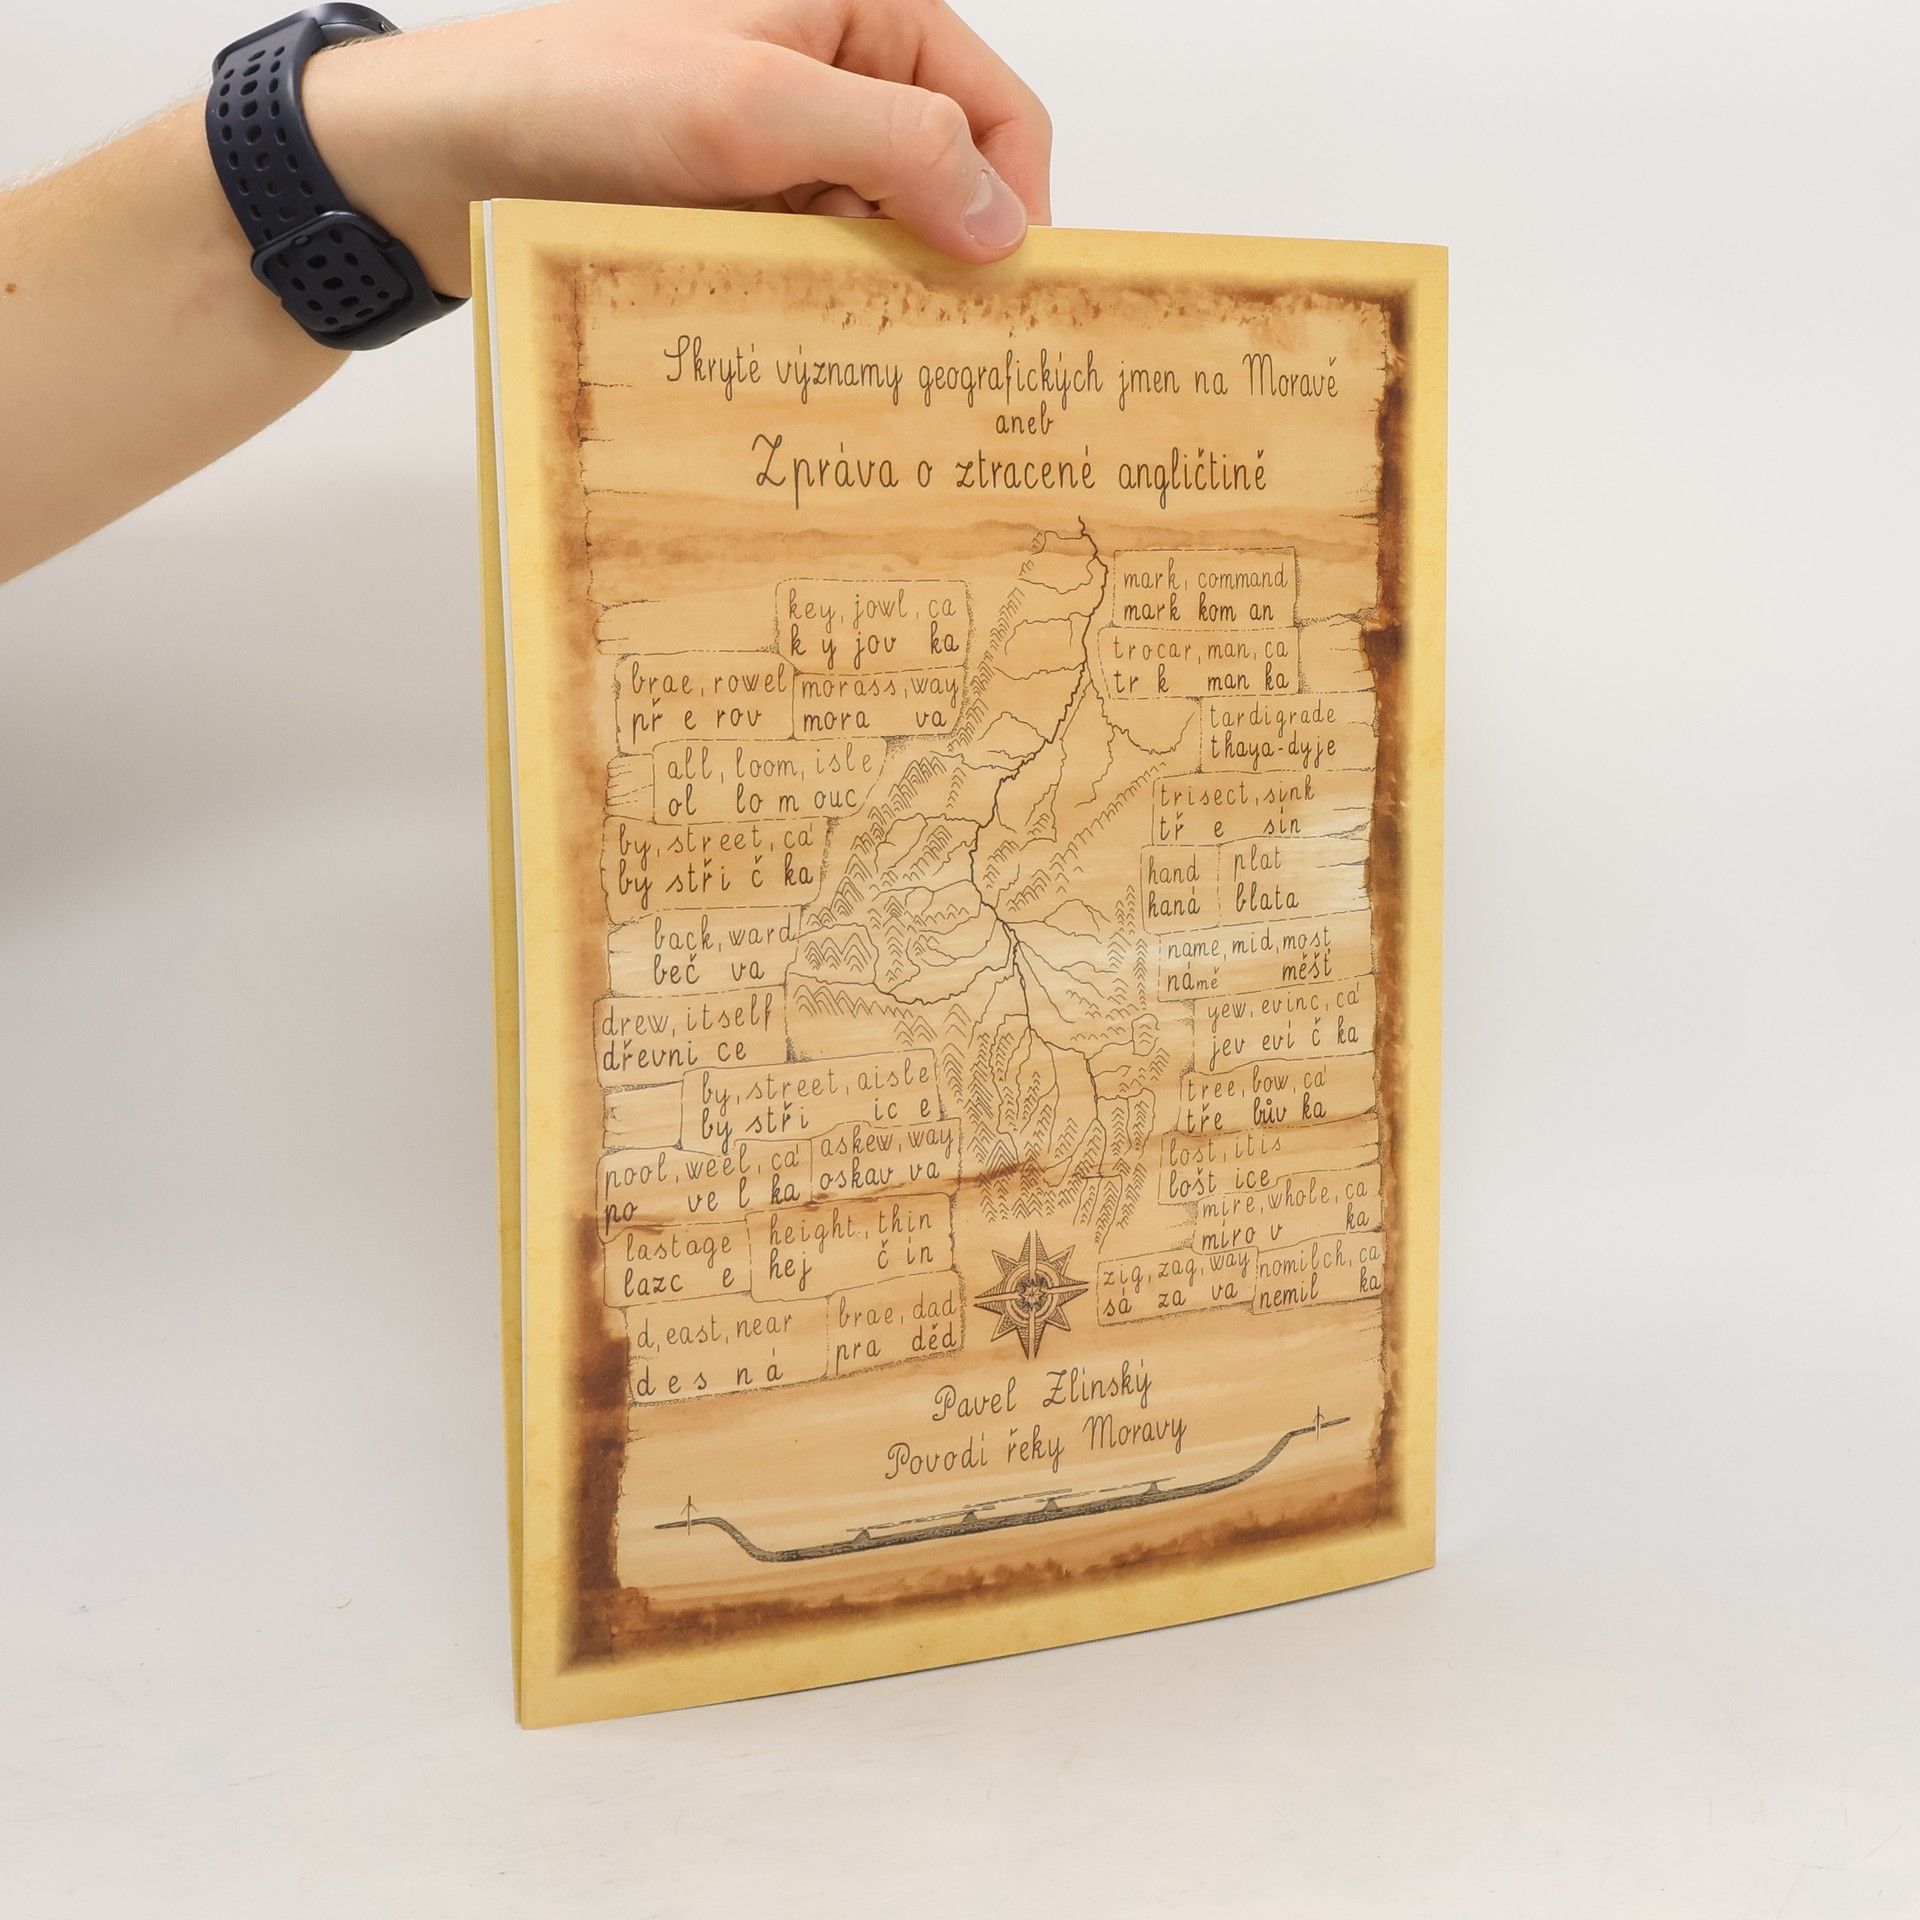 Skryté významy geografických jmen na Moravě
aneb
Zpráva o ztracené angličtině
key, jowl, ca
k y jov ka
brae, rowel
př e rov
morass, way
mora va
all, loom, isle
ol lo m ouc
by, street, ca'
by stři č ka
back, ward
beč va
drew, itself
dřevni ce
by, street, aisle
by stři ic e
pool, weel, ca'
po ve l ka
askew, way
oskav va
lastage
lazc e
height, thin
hej č ín
d, east, near
d e s n á
brae, dad
pra děd
mark, command
mark kom an
trocar, man, ca
tr k man ka
tardigrade
thaya-dyje
trisect, sink
tř e sín
hand
haná
plat
blata
name, mid, most
námě měšť
yew, evinc, ca'
jev eví č ka
tree, bow, ca'
tře bův ka
lost, itis
lošt ice
mire, whole, ca
míro v ka
zig, zag, way
sá za va
nomilch, ca
nemil ka
Pavel Zlínský
Povodí řeky Moravy